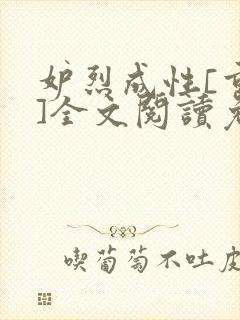 妒烈成性[重
]全文閱讀免
喫葡萄不吐皮